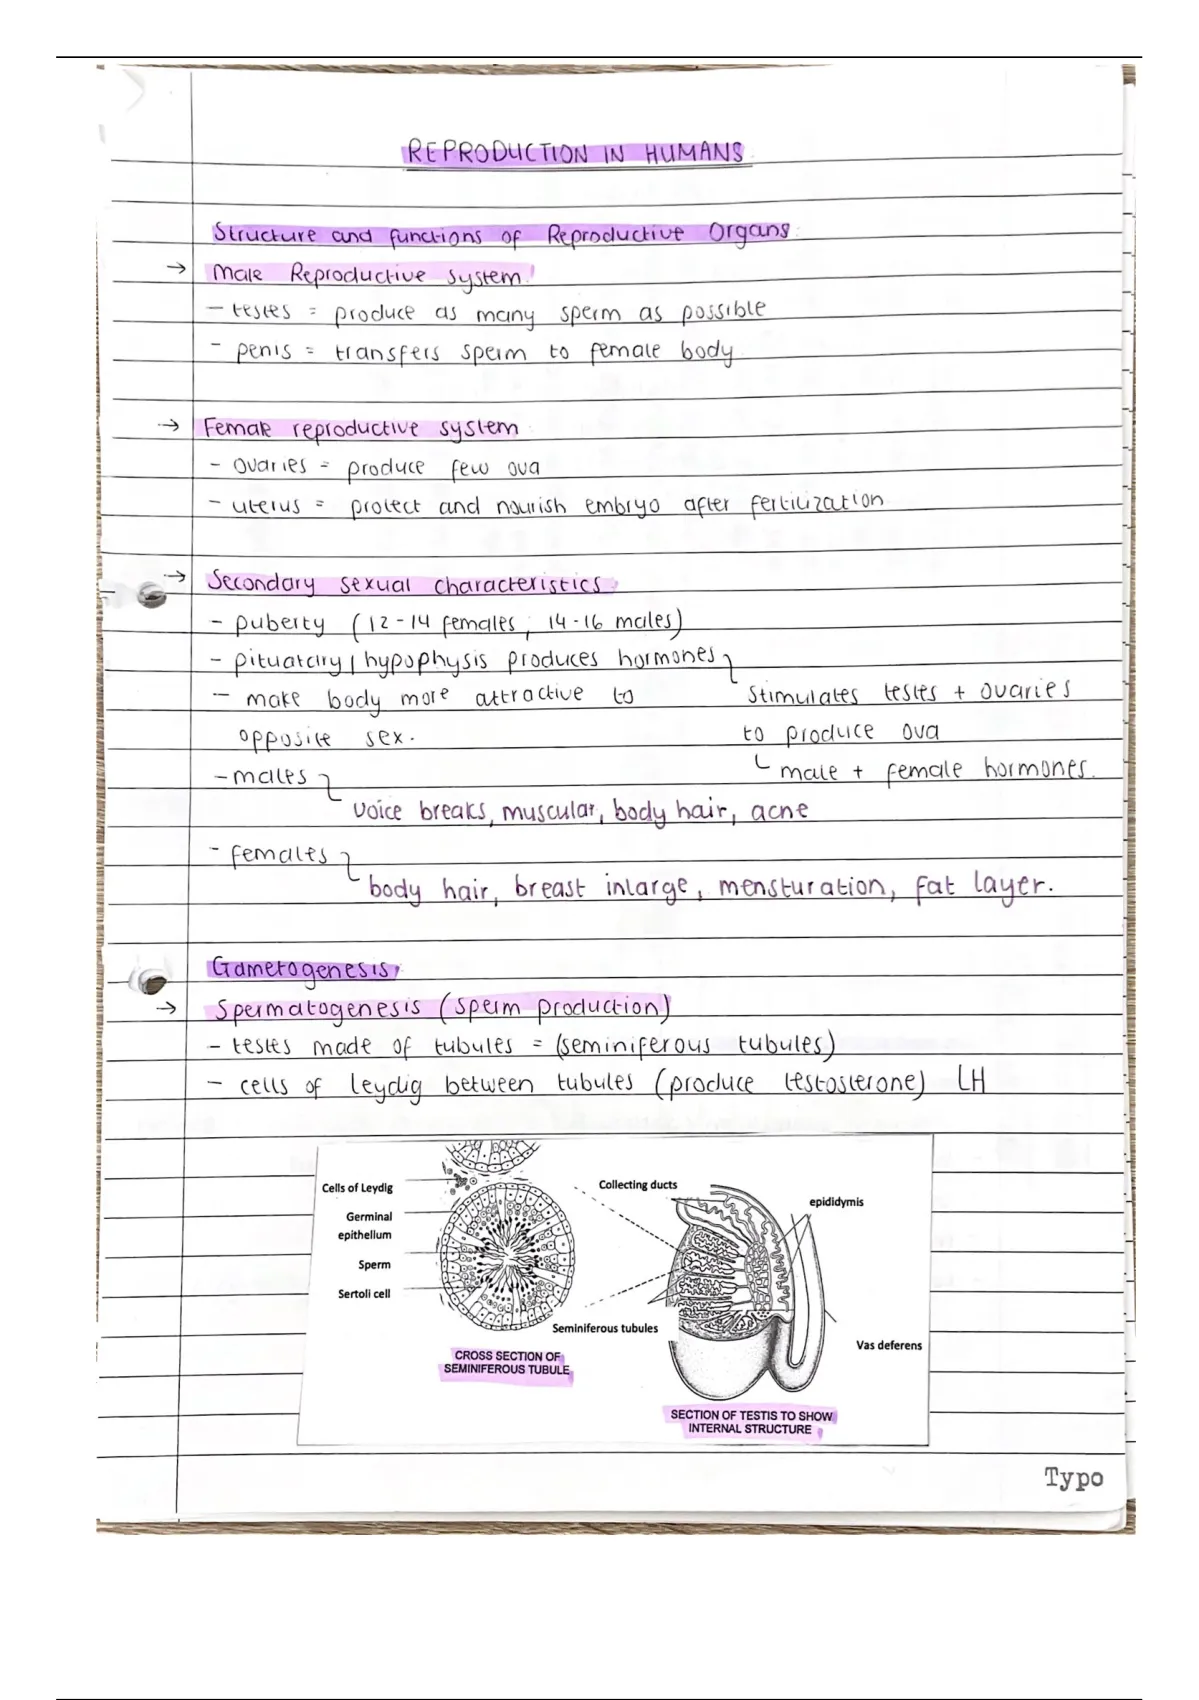 REPRODUCTION IN HUMANS
Structure and functions of Reproductive Organs
→ Male Reproductive system
- testes = produce as many sperm as possible
- penis = transfers sperm to female body
→ Female reproductive system
- ovaries = produce few ova
- uterus = protect and nourish embryo after fertilization
→ Secondary sexual characteristics
- puberty (12-14 females, 14-16 males)
- pituatary / hypophysis produces hormones
- make body more attractive to
stimulates testes + ovaries
opposite sex.
to produce ova
- males
male + female hormones.
voice breaks, muscular, body hair, acne
- females
body hair, breast inlarge, mensturation, fat layer.
Gametogenesis
→ Spermatogenesis (sperm production)
- testes made of tubules = (seminiferous tubules)
- cells of leydig between tubules (produce testosterone) LH
Cells of Leydig
Germinal
epithelium
Sperm
Sertoli cell
Collecting ducts
epididymis
Seminiferous tubules
Vas deferens
CROSS SECTION OF
SEMINIFEROUS TUBULE
SECTION OF TESTIS TO SHOW
INTERNAL STRUCTURE
Typo